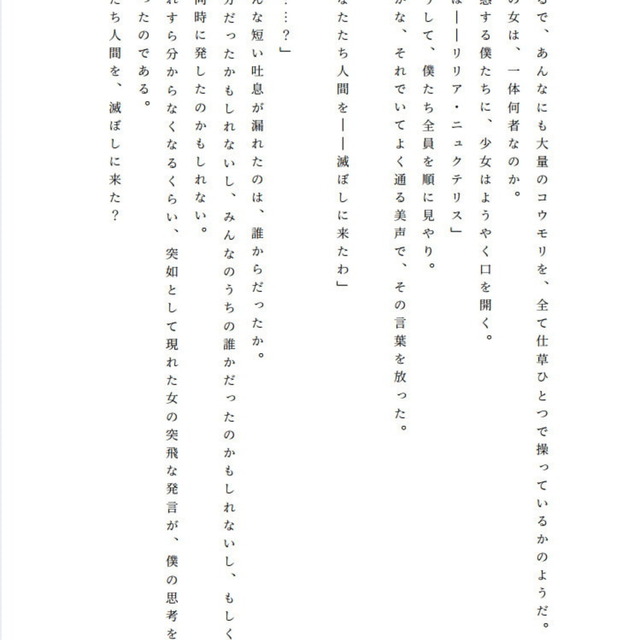 るで、あんなにも大量のコウモリを、全て仕草ひとつで操っているかのようだ。
の女は、一体何者なのか。
惑する僕たちに、少女はようやく口を開く。
は――リリア・ニュクテリス」
うして、僕たち全員を順に見やり。
かな、それでいてよく通る美声で、その言葉を放った。
なたたち人間を――滅ぼしに来たわ」
…？」
んな短い吐息が漏れたのは、誰からだったか。
分だったかもしれないし、みんなのうちの誰かだったのかもしれないし、もしく
同時に発したのかもしれない。
れすら分からなくなるくらい、突如として現れた女の突飛な発言が、僕の思考を
ったのである。
たち人間を、滅ぼしに来た？